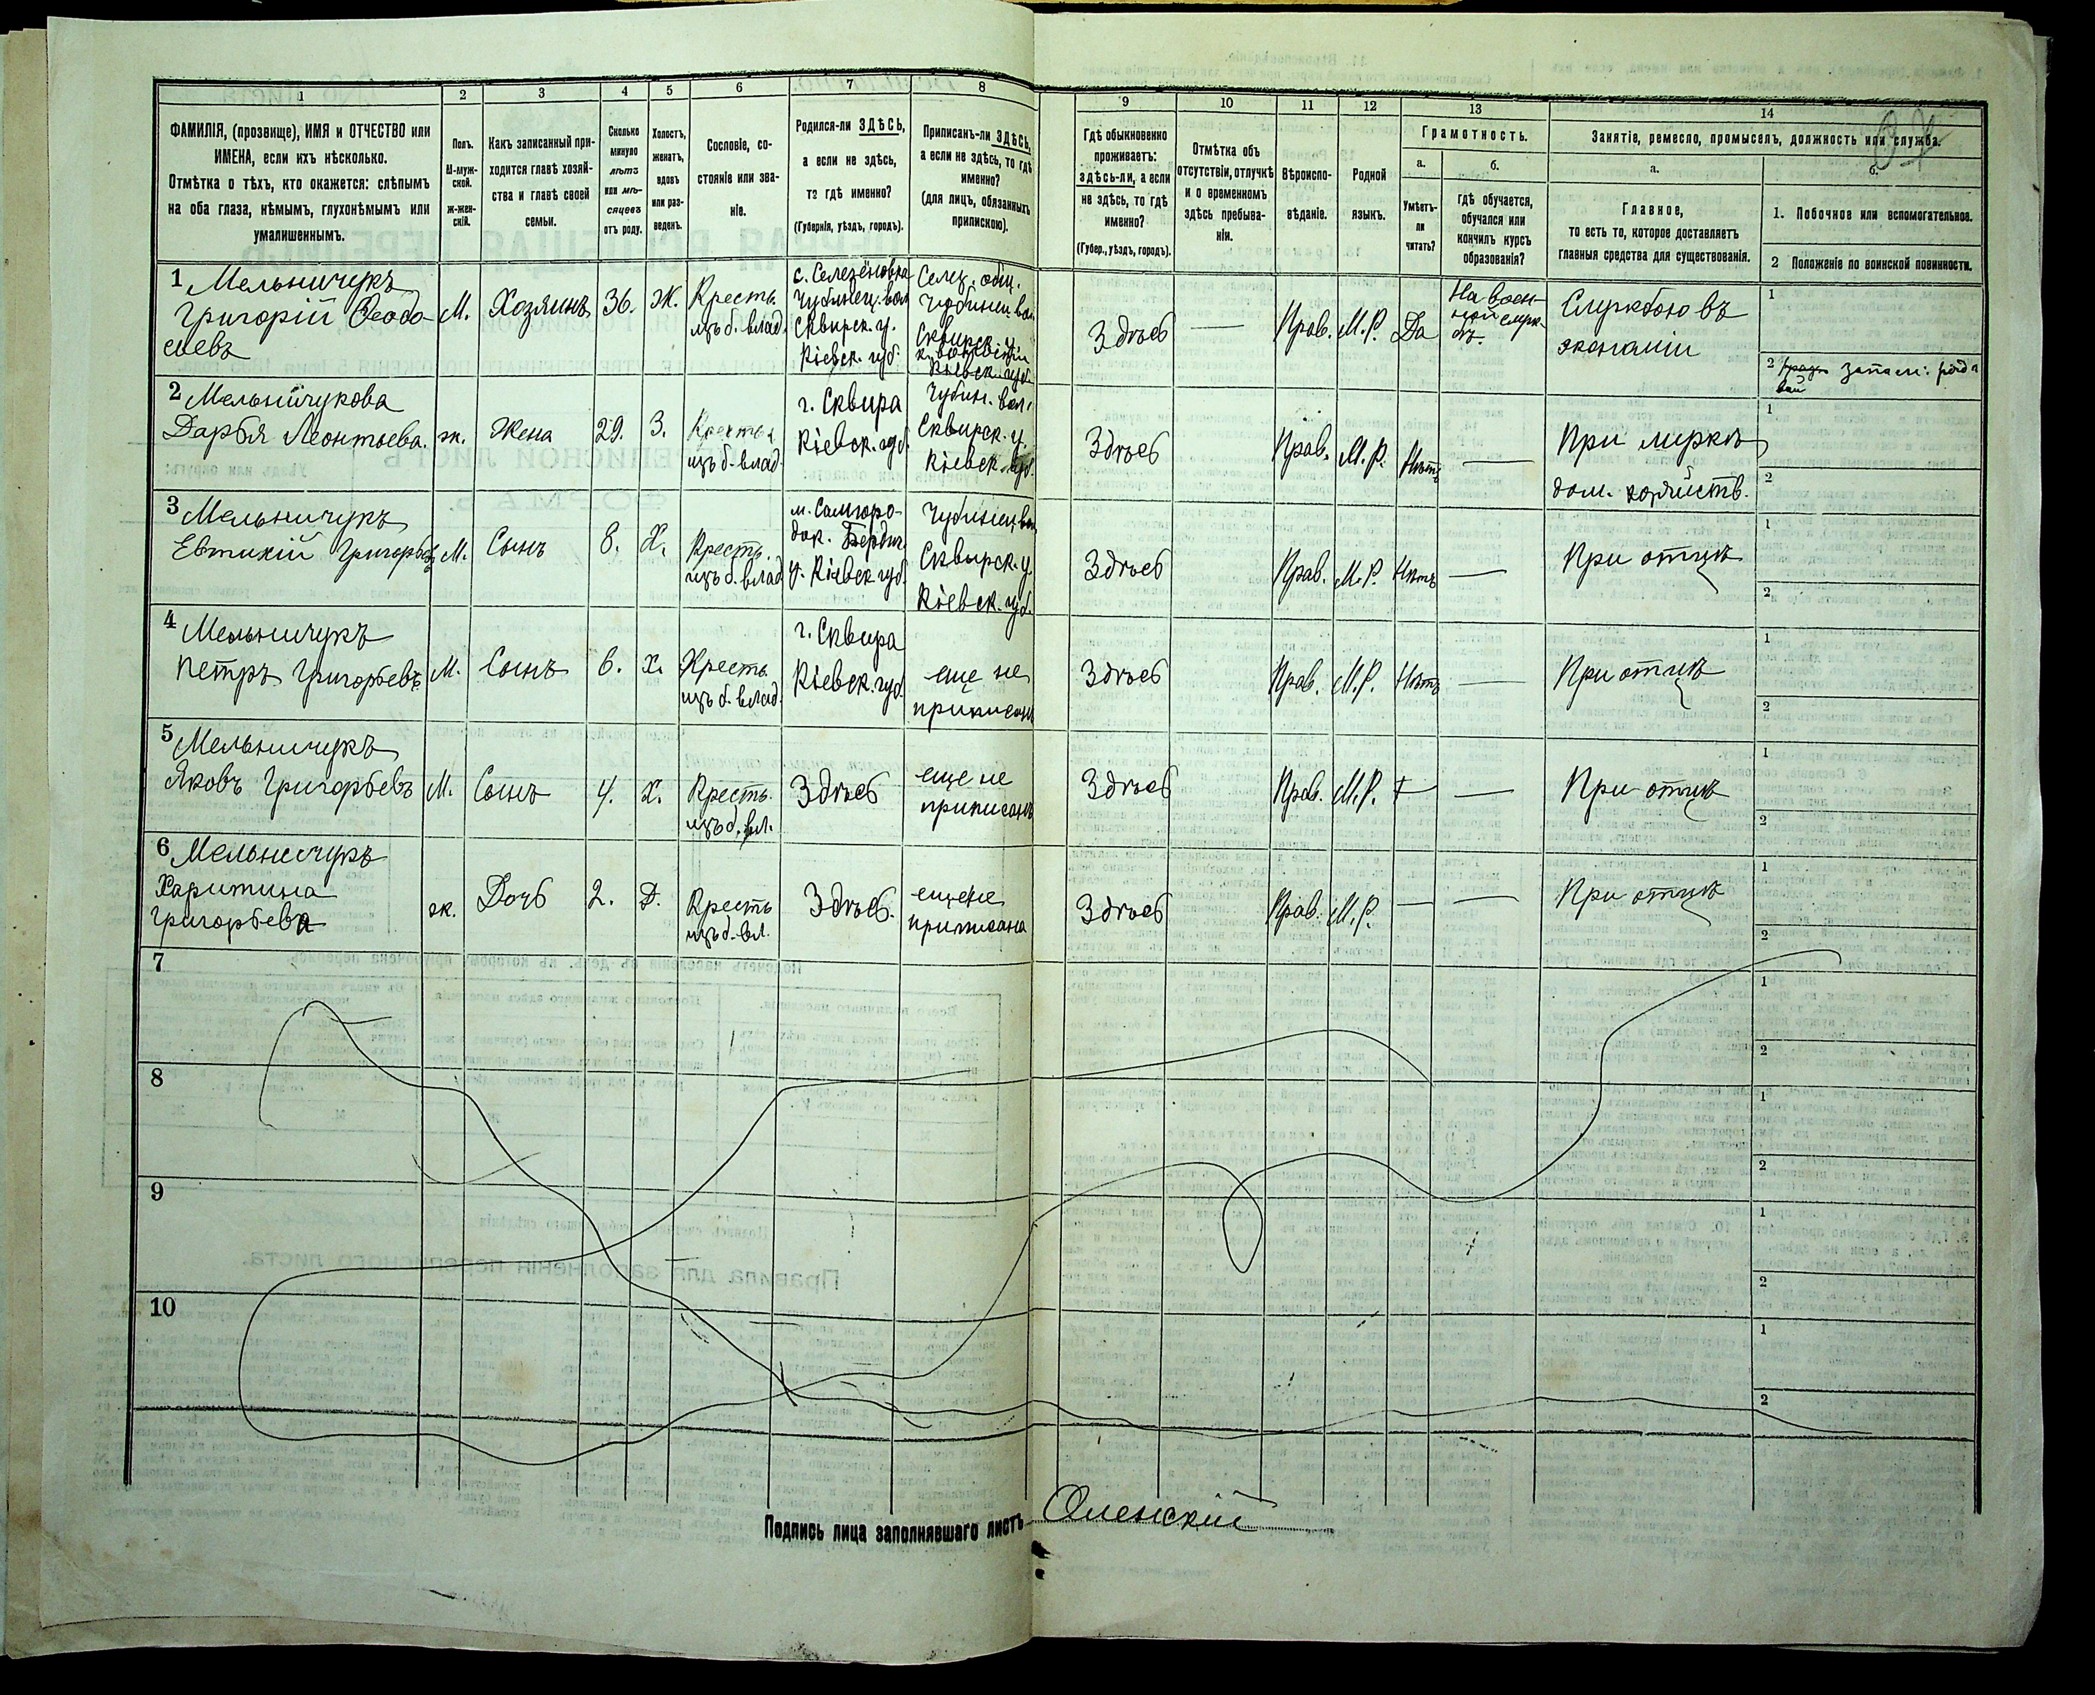 1 2 3 4 5 6 7 8 9 10 11 12 13 14
ФАМИЛІЯ, (прозвище), ИМЯ и ОТЧЕСТВО или
ИМЕНА, если ихъ нѣсколько.
Отмѣтка о тѣхъ, кто окажется: слѣпымъ
на оба глаза, нѣмымъ, глухонѣмымъ или
умалишеннымъ.
Полъ.
М-муж-
ской.
Ж-жен-
скій.
Какъ записанный при-
ходится главѣ хозяй-
ства и главѣ своей
семьи.
Сколько
минуло
лѣтъ
или мѣ-
сяцевъ
отъ роду.
Холостъ,
женатъ,
вдовъ
или раз-
веденъ.
Сословіе, со-
стояніе или зва-
ніе.
Родился-ли ЗДѢСЬ,
а если не здѣсь,
то гдѣ именно?
(Губернія, уѣздъ, городъ).
Приписанъ-ли ЗДѢСЬ,
а если не здѣсь, то гдѣ
именно?
(для лицъ, обязанныхъ
припискою).
Гдѣ обыкновенно
проживаетъ:
здѣсь-ли, а если
не здѣсь, то гдѣ
именно?
(Губер., уѣздъ, городъ).
Отмѣтка объ
отсутствіи, отлучкѣ
и о временномъ
здѣсь пребыва-
ніи.
Вѣроиспо-
вѣданіе.
Родной
языкъ.
Грамотность.
а.
Умѣетъ-
ли
читать?
б.
гдѣ обучается,
обучался или
кончилъ курсъ
образованія?
Занятіе, ремесло, промыселъ, должность или служба.
а.
Главное,
то есть то, которое доставляетъ
главныя средства для существованія.
б.
1. Побочное или вспомогательное.
2 Положеніе по воинской повинности.
1 Мельничукъ
Григорій Феодо-
сьевъ
М.
Хозяинъ
36.
Ж.
Кресть.
изъ б. влад.
с. Селезёновка
Чубинец. вол.
Сквирск. у.
Кіевск. губ.
Селез. общ.
Чубинец. вол.
Сквирск. у.
Кіевск. губ.
Здѣсь
—
Прав.
М.Р.
Да
На воен-
ной служ-
бѣ.
Службою въ
экономіи
1
2 запасн. рядо
вой
2 Мельничукова
Дарья Леонтьева.
ж.
Жена
29.
З.
Кресть.
изъ б. влад.
г. Сквира
Кіевск. губ.
Чубин. вол.
Сквирск. у.
Кіевск. губ.
Здѣсь
Прав.
М.Р.
Нѣтъ
—
При мужѣ
дом. хозяйств.
1
2
3 Мельничукъ
Евтихій Григорьевъ
М.
Сынъ
8.
Х.
Кресть.
изъ б. влад.
м. Самгоро-
док. Бердич.
у. Кіевск. губ.
Чубинец. вол.
Сквырск. у.
Кіевск. губ.
Здѣсь
Прав.
М.Р.
Нѣтъ
—
При отцѣ
1
2
4 Мельничукъ
Петръ Григорьевъ
М.
Сынъ
6.
Х.
Кресть.
изъ б. влад.
г. Сквира
Кіевск. губ.
еще не
приписанъ
Здѣсь
Прав.
М.Р.
Нѣтъ
—
При отцѣ
1
2
5 Мельничукъ
Яковъ Григорьевъ
М.
Сынъ
4.
Х.
Кресть.
изъ б. вл.
Здѣсь
еще не
приписанъ
Здѣсь
Прав.
М.Р.
—
При отцѣ
1
2
6 Мельничукъ
Харитина
Григорьева
ж.
Дочь
2.
Д.
Кресть
изъ б. вл.
Здѣсь.
еще не
приписана
Здѣсь
Прав.
М.Р.
—
—
При отцѣ
1
2
7
1
2
8
1
2
9
1
2
10
1
2
Подпись лица заполнявшаго листъ Оленскій